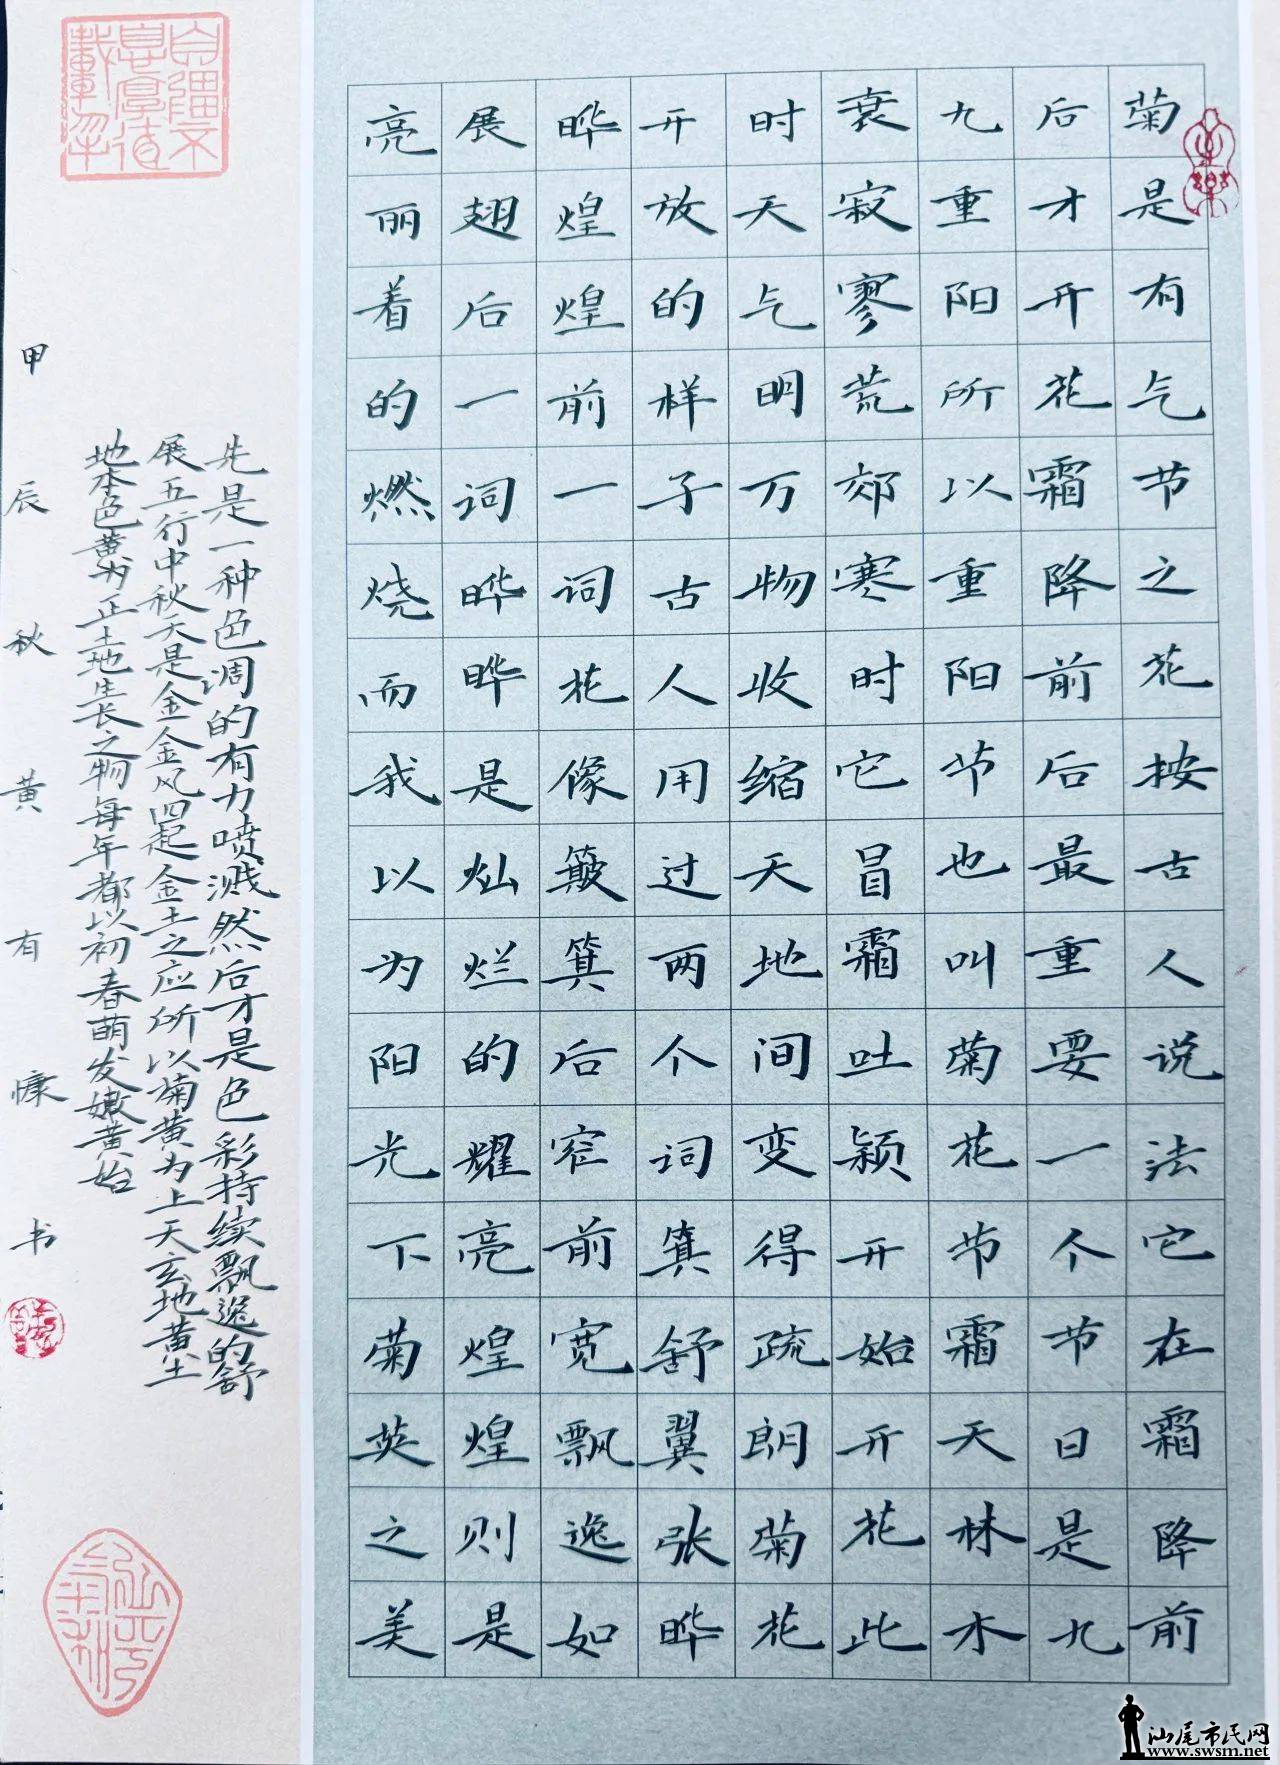 菊是有气节之花按古人说法它在霜降前
后才开花霜降前后最重要一个节日是九
九重阳所以重阳节也叫菊花节霜天林木
衰寂寥荒郊寒时它冒霜吐颖开始开花此
时天气明万物收缩天地间变得疏朗菊花
开放的样子古人用过两个词箕舒翼张晔
晔煌煌前一词花像簸箕后窄前宽飘逸如
展翅后一词晔晔是灿烂的耀亮煌煌则是
亮丽着的燃烧而我以为阳光下菊英之美
先是一种色调的有力喷溅然后才是色彩持续飘逸的舒
展五行中秋天是金金风四起金土之应所以菊黄为上天玄地黄土
地本色黄为正土地生长之物每年都以初春萌发嫩黄始
甲辰秋黄有慷书
自强不息厚德载物
汕尾市民网
www.swsm.net